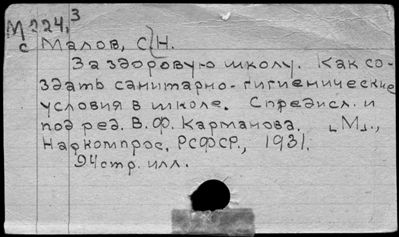 М 224,3
с Малов, С.Н.
За здоровую школу. Как со-
здать санитарно-гигиенические
условия в школе. С предисл. и
под ред. В.Ф. Карманова. [М].,
Наркомпрос, РСФСР, 1931.
94 стр. илл.